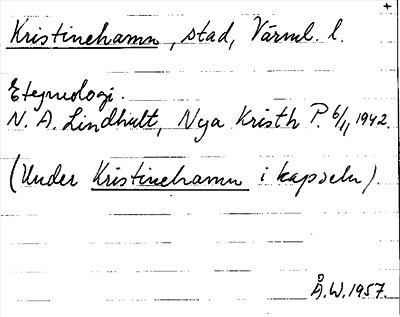 Kristinehamn, stad, Värml. l.
Etymologi.
N. A. Lindhult, Nya Kristh P. 6/11 1942.
(Under Kristinehamn i kapseln).
Å.W. 1957.